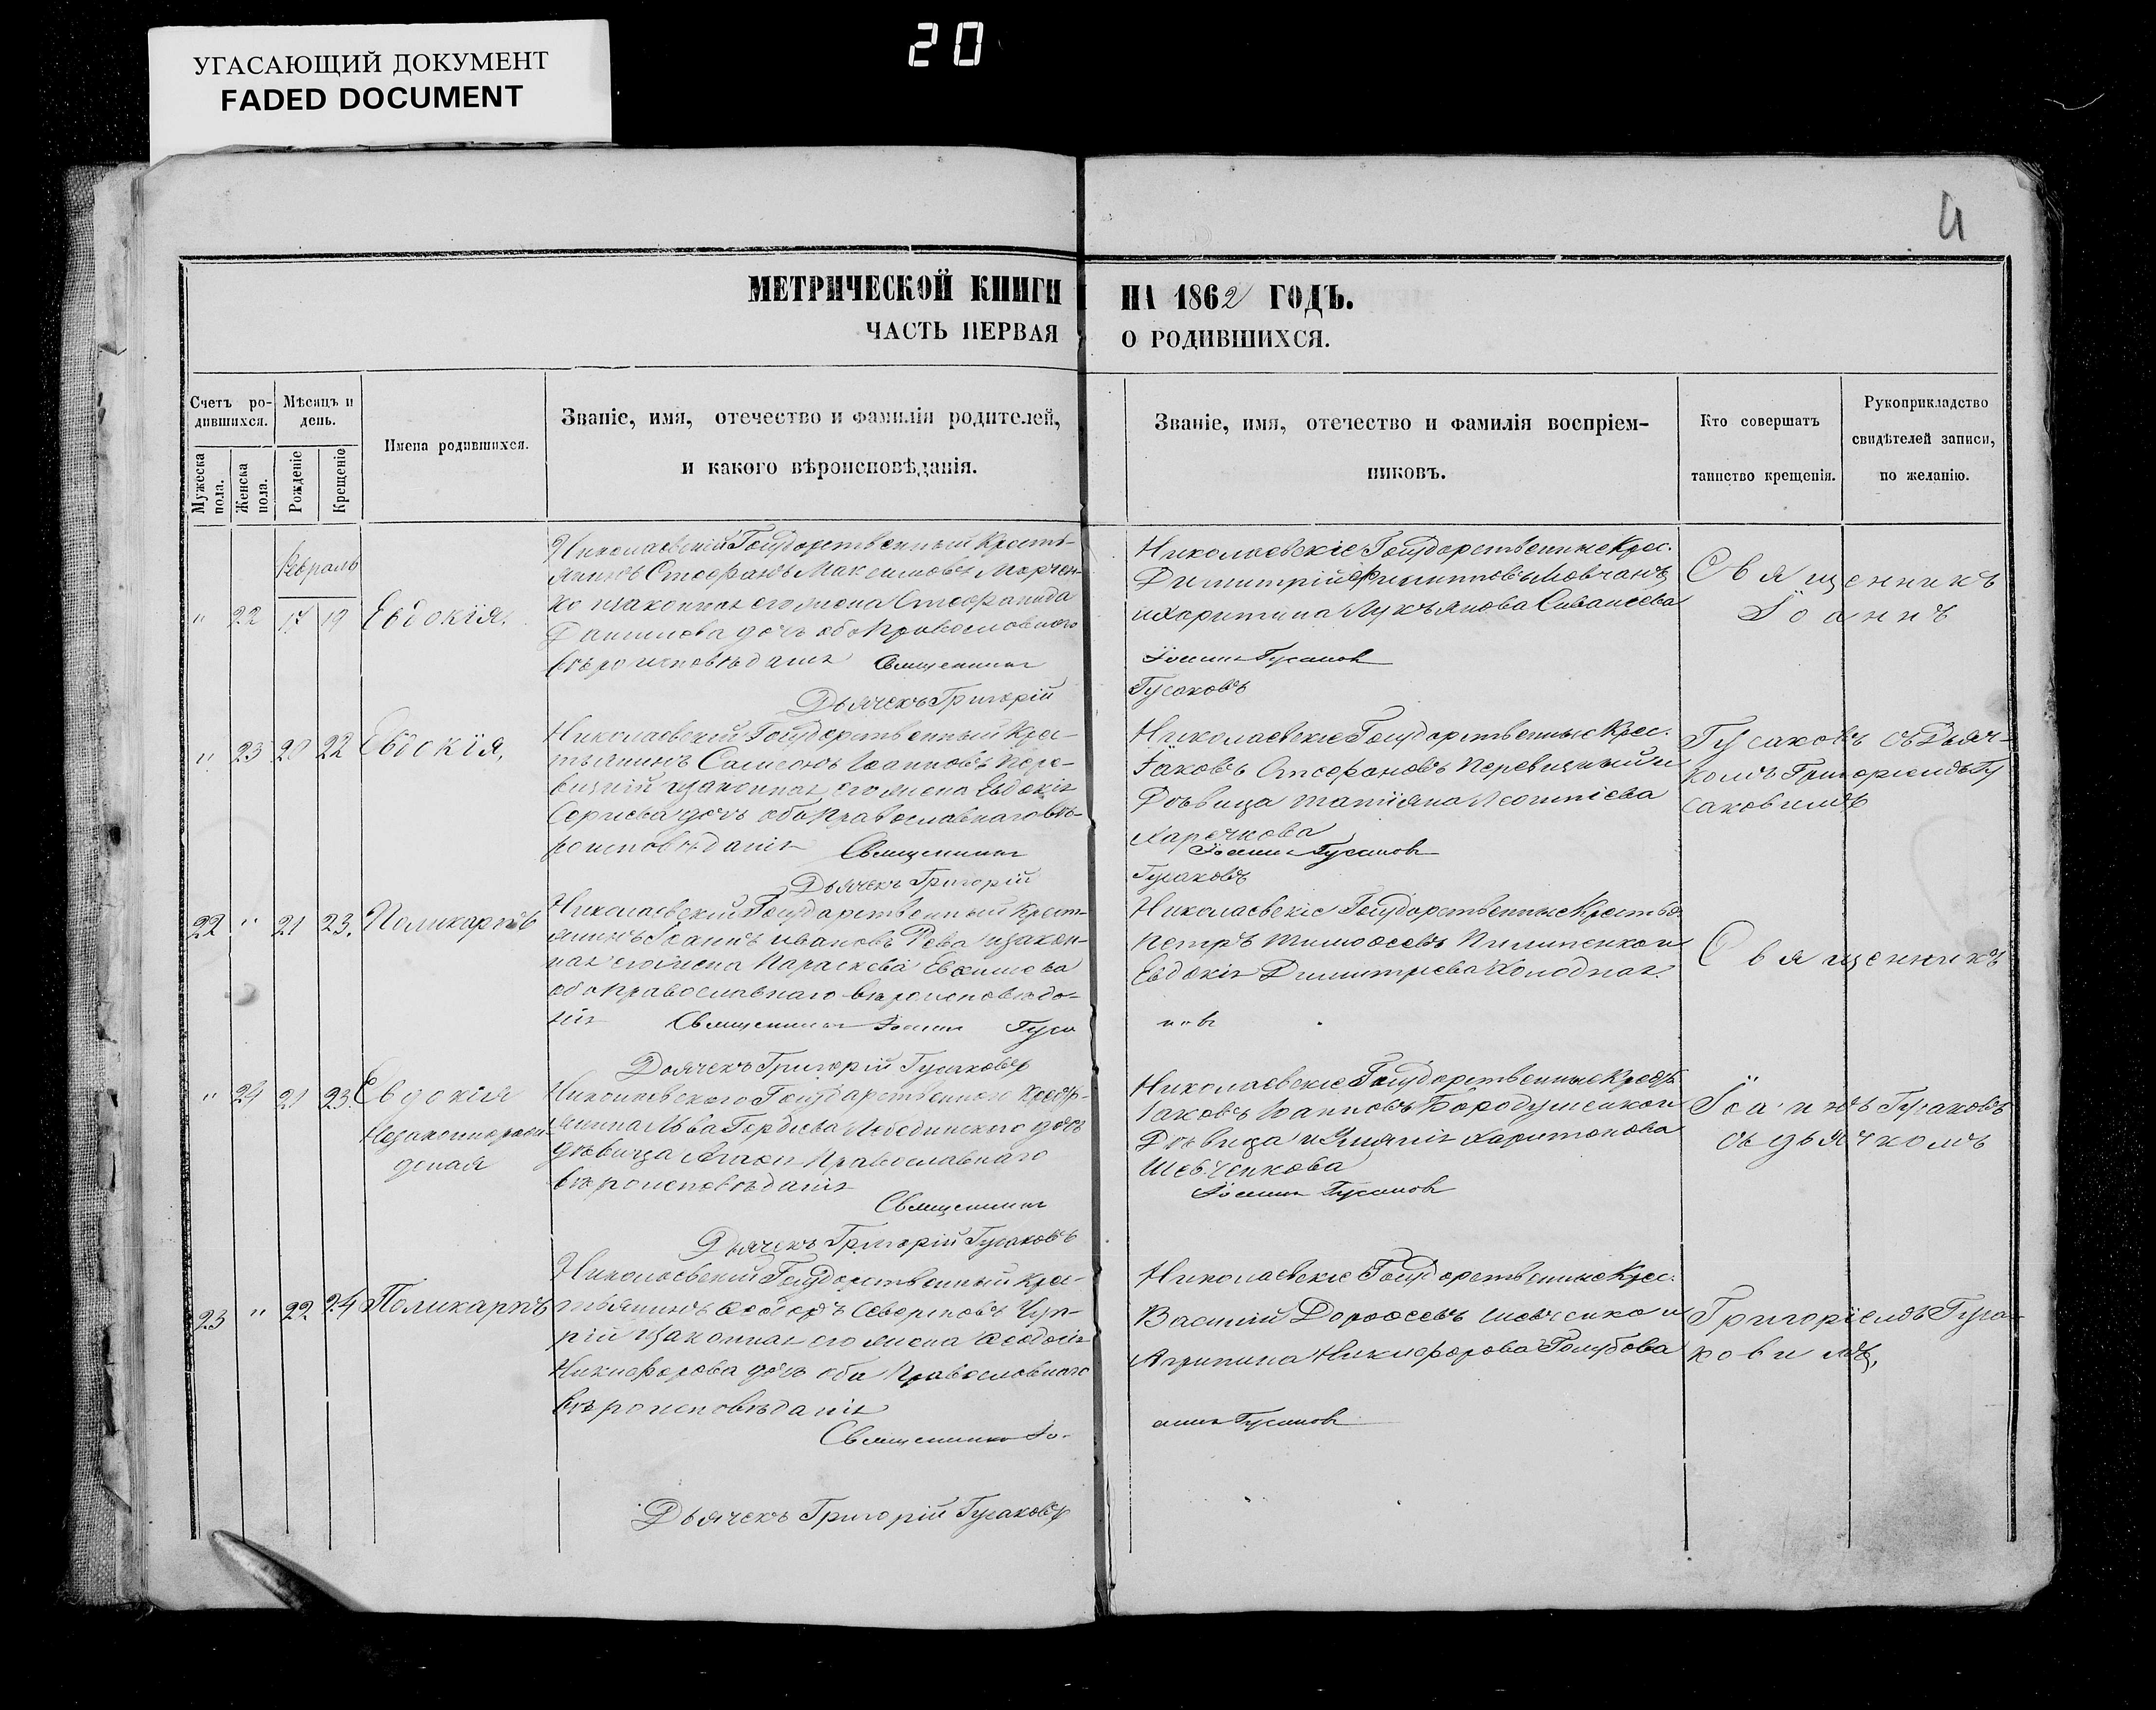 УГАСАЮЩИЙ ДОКУМЕНТ
FADED DOCUMENT
20
МЕТРИЧЕСКОЙ КНИГИ НА 1862 ГОДЪ.
ЧАСТЬ ПЕРВАЯ О РОДИВШИХСЯ.
Счетъ ро-
дившихся.
Мужеска
пола.
Женска
пола.
Мѣсяцъ и
день.
Рожденіе
Крещеніе
Имена родившихся.
Званіе, имя, отечество и фамилія родителей,
и какого вѣроисповѣданія.
Званіе, имя, отечество и фамилія воспріем-
никовъ.
Кто совершатъ
таинство крещенія.
Рукоприкладство
свидѣтелей записи,
по желанію.
Февраль
" 22 17 19 Евдокія.
Николаевскій Государственный Кресть-
янинъ Стефанъ Максимовъ Марчен-
ко изаконная его жена Стефанида
Данилова дочь обо Православнаго
вѣроисповѣданія Священникъ
Дьячекъ Григорій
Николаевскіе Государственные Крес.
Димитрій Филиповъ Мовчанъ
и Харитина Лукъянова
Іоаннъ Гусаковъ
Гусаковъ
Священникъ
Іоаннъ
" 23 20 22 Евдокія,
Николаевскій Государственный Крес-
тьянинъ Самсонъ Іоанновъ Пере-
вицкій изаконная его жена Евдокія
Сергиева дочь обо Православнаго вѣ-
роисповѣданія Священникъ
Дьячекъ Григорій
Николаевскіе Государственные Крес.
Іаковъ Стефановъ Перевицкій и
Дѣвица Татіяна Леонтіева
Харечкова
Іоаннъ Гусаковъ
Гусаковъ
Гусаковъ съ Дьяч-
комъ Григоріемъ Гу
саковимъ
22 " 21 23. Поликарпъ
Николаевскій Государственный Крест-
янинъ Іоаннъ Ивановъ Рева изакон-
ная его жена Параскева Евфимова
обо Православнаго вѣроисповѣда-
нія Священникъ Іоаннъ Гуса
Дьячекъ Григорій Гусаковъ
Николаевскіе Государственные Крестья.
Петръ Тимофеевъ Пилипенко и
Евдокія Димитріева Холодная.
ковъ
Священникъ
" 24 21 23. Евдокія
Незаконнорож
деная
Николаевскаго Государственнаго Крестъ-
янина Льва Гордіева Лебединскаго дочь
дѣвица Агафія Православнаго
вѣроисповѣданія
Священникъ
Дьячекъ Григорій Гусаковъ
Николаевскіе Государственные Крест.
Іаковъ Іоанновъ Бородушенко и
Дѣвица Харитонова
Шевченкова
Іоаннъ Гусаковъ
Іоаннъ Гусаковъ
съ дьячкомъ
23 " 22 24 Поликарпъ
Николаевскій Государственный Крес-
тьянинъ Феодоръ Севериновъ Чуп-
рій изаконная его жена Феодосія
Никифорова дочь оба Православнаго
вѣроисповѣданія
Священникъ Іо-
Дьячекъ Григорій Гусаковъ
Николаевскіе Государственные Крес.
Василій Дорофеевъ Шевченко и
Агрипина Никифорова Голубова
аннъ Гусаковъ
Григоріемъ Гуса-
ковимъ,